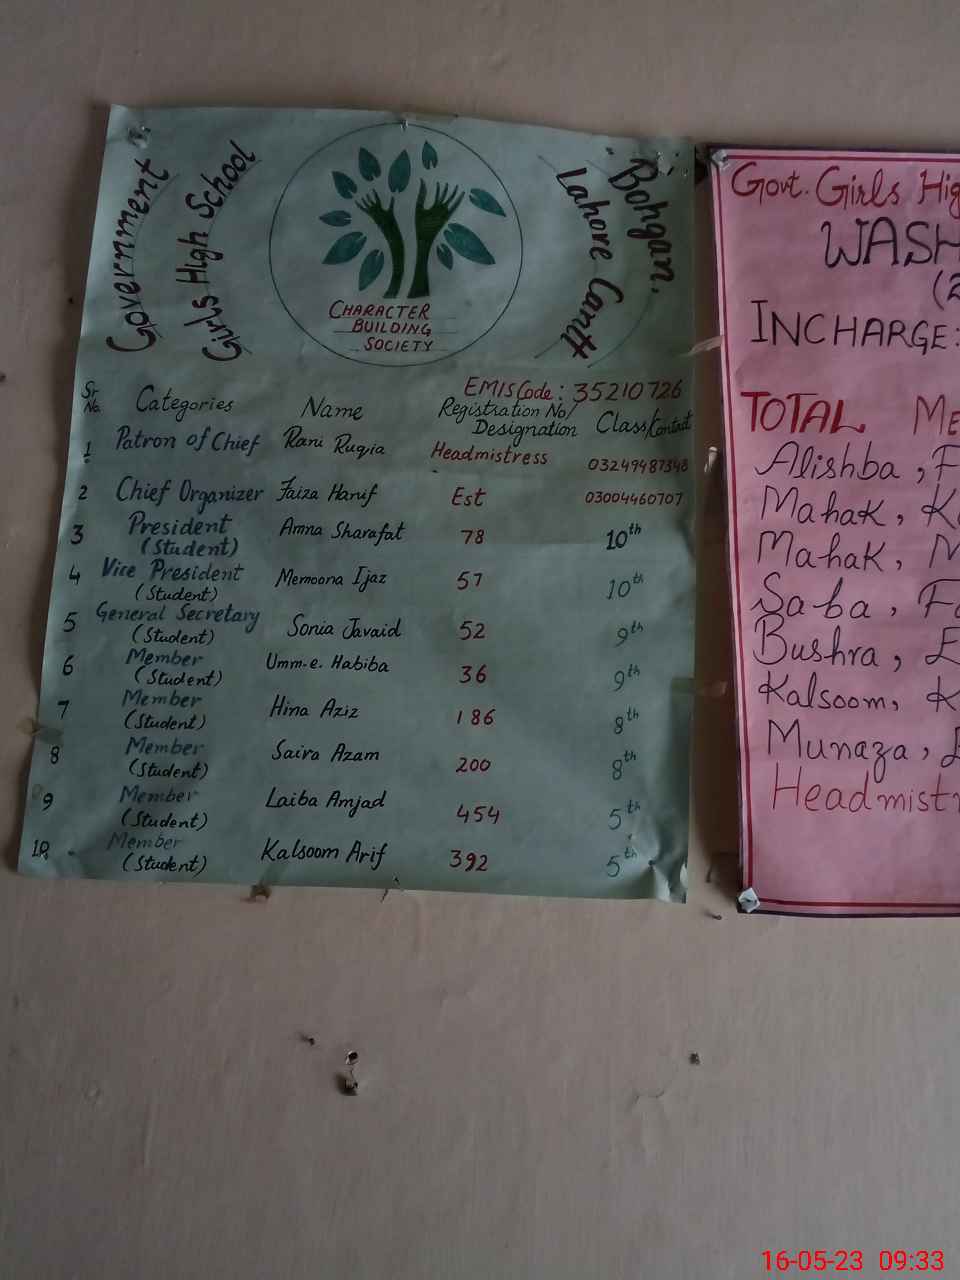 Government
Girls High School
Bohgan.
Lahore Cantt
CHARACTER
BUILDING
SOCIETY
EMIS Code: 35210726
Sr No. Categories Name Registration No/ Designation Class/Contact
1 Patron of Chief Rani Ruqia Headmistress 03249487348
2 Chief Organizer Faiza Hanif Est 03004460707
3 President (Student) Amna Sharafat 78 10th
4 Vice President (Student) Memoona Ijaz 57 10th
5 General Secretary (Student) Sonia Javaid 52 9th
6 Member (Student) Umm-e-Habiba 36 9th
7 Member (Student) Hina Aziz 186 8th
8 Member (Student) Saira Azam 200 8th
9 Member (Student) Laiba Amjad 454 5th
10 Member (Student) Kalsoom Arif 392 5th
Govt. Girls Hig
WASH
(2
INCHARGE:
TOTAL ME
Alishba, F
Mahak, K
Mahak, M
Saba, Fa
Bushra, E
Kalsoom, K
Munaza,
Headmistr
16-05-23 09:33